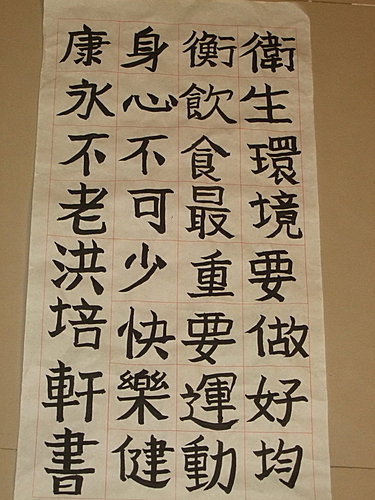 衛生環境要做好均
衡飲食最重要運動
身心不可少快樂健
康永不老洪培軒書